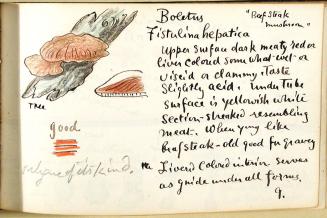 Boletus
"Beefsteak mushroom"
Fistulina hepatica
Upper surface dark meaty red or
liver colored somewhat wet or
viscid or clammy. Taste
Slightly acid. under Tube
surface is yellowish white
Section-streaked resembling
meat. When young like
beefsteak-old good for gravey
Liver'd Colored interior serves
as guide under all forms.
Tree
good
of its kind.